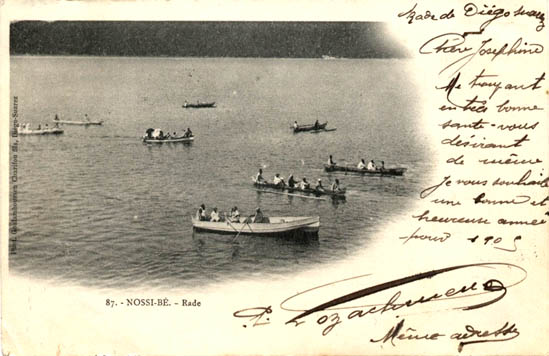 Rade de Diégo Suarez
Chère Josephine
Me trouvant
en très bonne
sante - vous
désirant
de même
Je vous souhaite
une bonne et
heureuse année
pour 1905
87. - NOSSI-BÉ. - Rade
P.
Même adresse